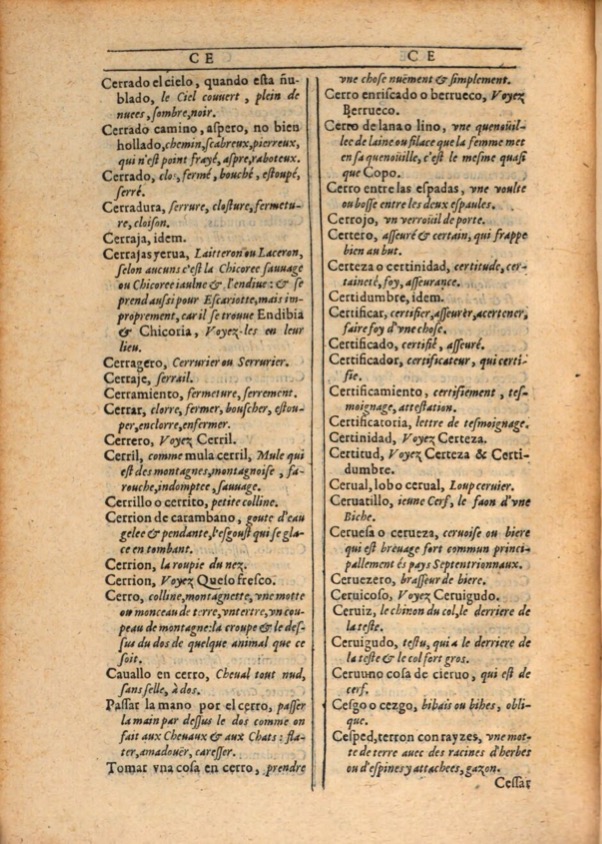 C E
Cerrado el cielo, quando esta ñu-
blado, le Ciel couuert, plein de
nuees, sombre, noir.
Cerrado camino, aspero, no bien
hollado, chemin, scabreux, pierreux,
qui n'est point frayé, aspre, raboteux.
Cerrado, clos, fermé, bouché, estoupé,
serré.
Cerradura, serrure, closture, fermetu-
re, cloison.
Cerraja, idem.
Cerrajas yerua, Laitteron ou Laceron,
selon aucuns c'est la Chicoree sauuage
ou Chicoree iaulne & l'endiue: & se
prend aussi pour Escariotte, mais im-
proprement, car il se trouue Endibia
& Chicoria, Voyez-les en leur
lieu.
Cerragero, Cerrurier ou Serrurier.
Cerraje, serrail.
Cerramiento, fermeture, serrement.
Cerrar, clorre, fermer, bouscher, estou-
per, enclorre, enfermer.
Cerrero, Voyez Cerril.
Cerril, comme mula cerril, Mule qui
est des montagnes, montagnoise, fa-
rouche, indomptee, sauuage.
Cerrillo o cerrito, petite colline.
Cerrion de carambano, goute d'eau
gelee & pendante, l'esgoust qui se gla-
ce en tombant.
Cerrion, la roupie du nez.
Cerrion, Voyez Queso fresco.
Cerro, colline, montagnette, vne motte
ou monceau de terre, vn tertre, vn cou-
peau de montagne: la croupe & le des-
sus du dos de quelque animal que ce
soit.
Cauallo en cerro, Cheual tout nud,
sans selle, à dos.
Passar la mano por el cerro, passer
la main par dessus le dos comme on
fait aux Cheuaux & aux Chats: fla-
ter, amadouër, caresser.
Tomar vna cosa en cerro, prendre
C E
vne chose nuëment & simplement.
Cerro enriscado o berrueco, Voyez
Berrueco.
Cerro de lana o lino, vne quenoüil-
lee de laine ou filace que la femme met
en sa quenoüille, c'est le mesme quasi
que Copo.
Cerro entre las espadas, vne voulte
ou bosse entre les deux espaules.
Cerrojo, vn verroüil de porte.
Certero, asseuré & certain, qui frappe
bien au but.
Certeza o certinidad, certitude, cer-
taineté, foy, asseurance.
Certidumbre, idem.
Certificar, certifier, asseurer, acertener,
faire foy d'vne chose.
Certificado, certifié, asseuré.
Certificador, certificateur, qui certi-
fie.
Certificamiento, certifiement, tes-
moignage, attestation.
Certificatoria, lettre de tesmoignage.
Certinidad, Voyez Certeza.
Certitud, Voyez Certeza & Certi-
dumbre.
Cerual, lobo cerual, Loup ceruier.
Ceruatillo, ieune Cerf, le faon d'vne
Biche.
Ceruesa o cerueza, ceruoise ou biere
qui est breuage fort commun princi-
pallement és pays Septentrionnaux.
Ceruezero, brasseur de biere.
Ceruicoso, Voyez Ceruigudo.
Ceruiz, le chinon du col, le derriere de
la teste.
Ceruigudo, testu, qui a le derriere de
la teste & le col fort gros.
Ceruuno cosa de cieruo, qui est de
cerf.
Cesgo o cezgo, bibais ou bihes, obli-
que.
Cesped, terron con rayzes, vne mot-
te de terre auec des racines d'herbes
ou d'espines y attachees, gazon.
Cessar